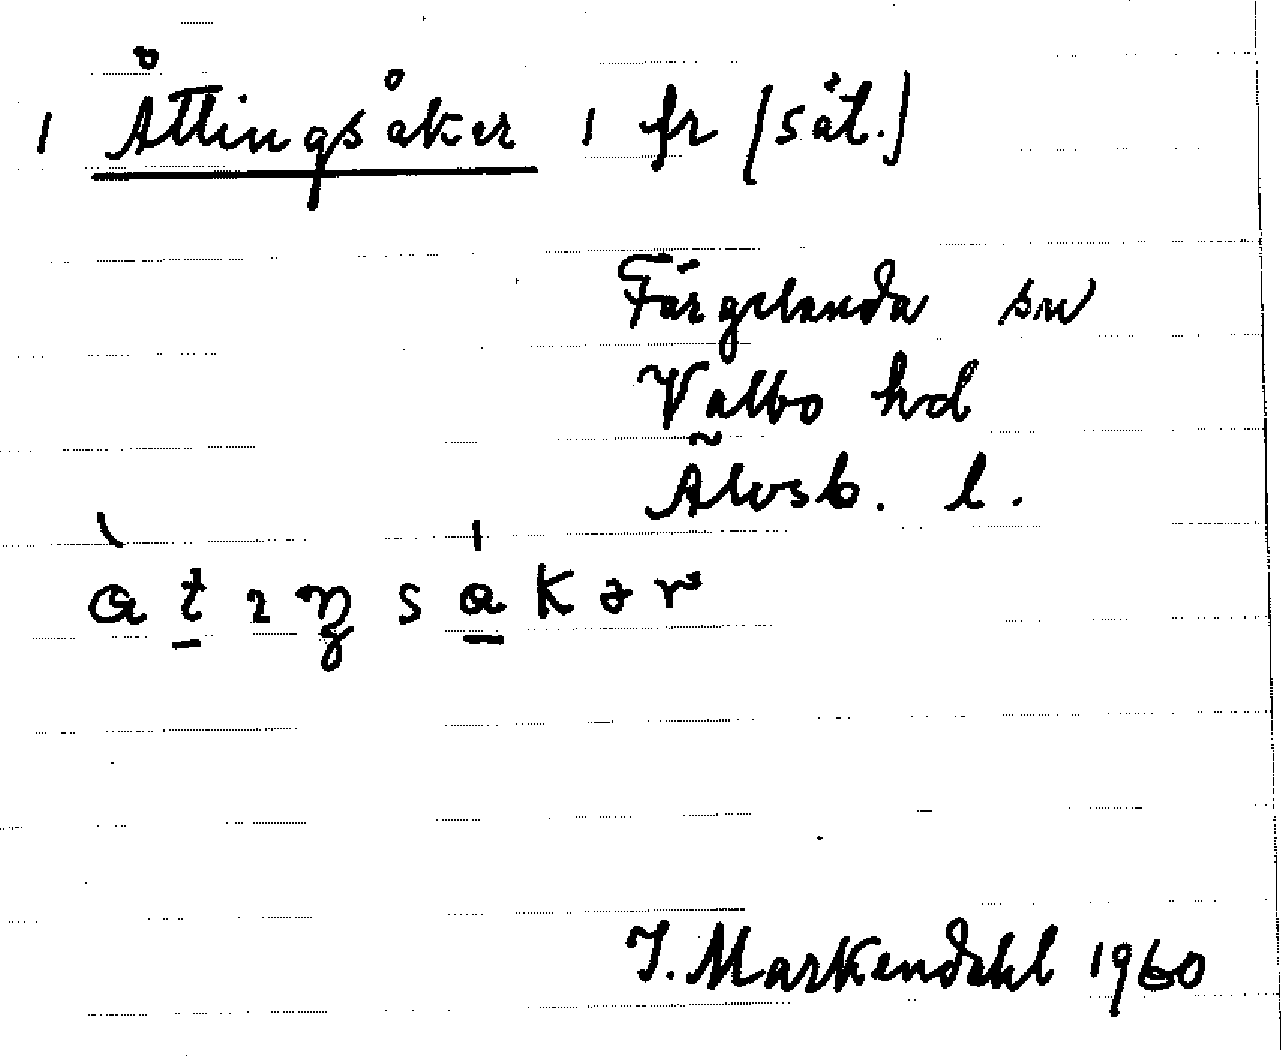 1 Åttingsåker 1 fr (sät.)
Färgelanda sn
Valbo hd
Älvsb. l.
I. Markendahl 1960